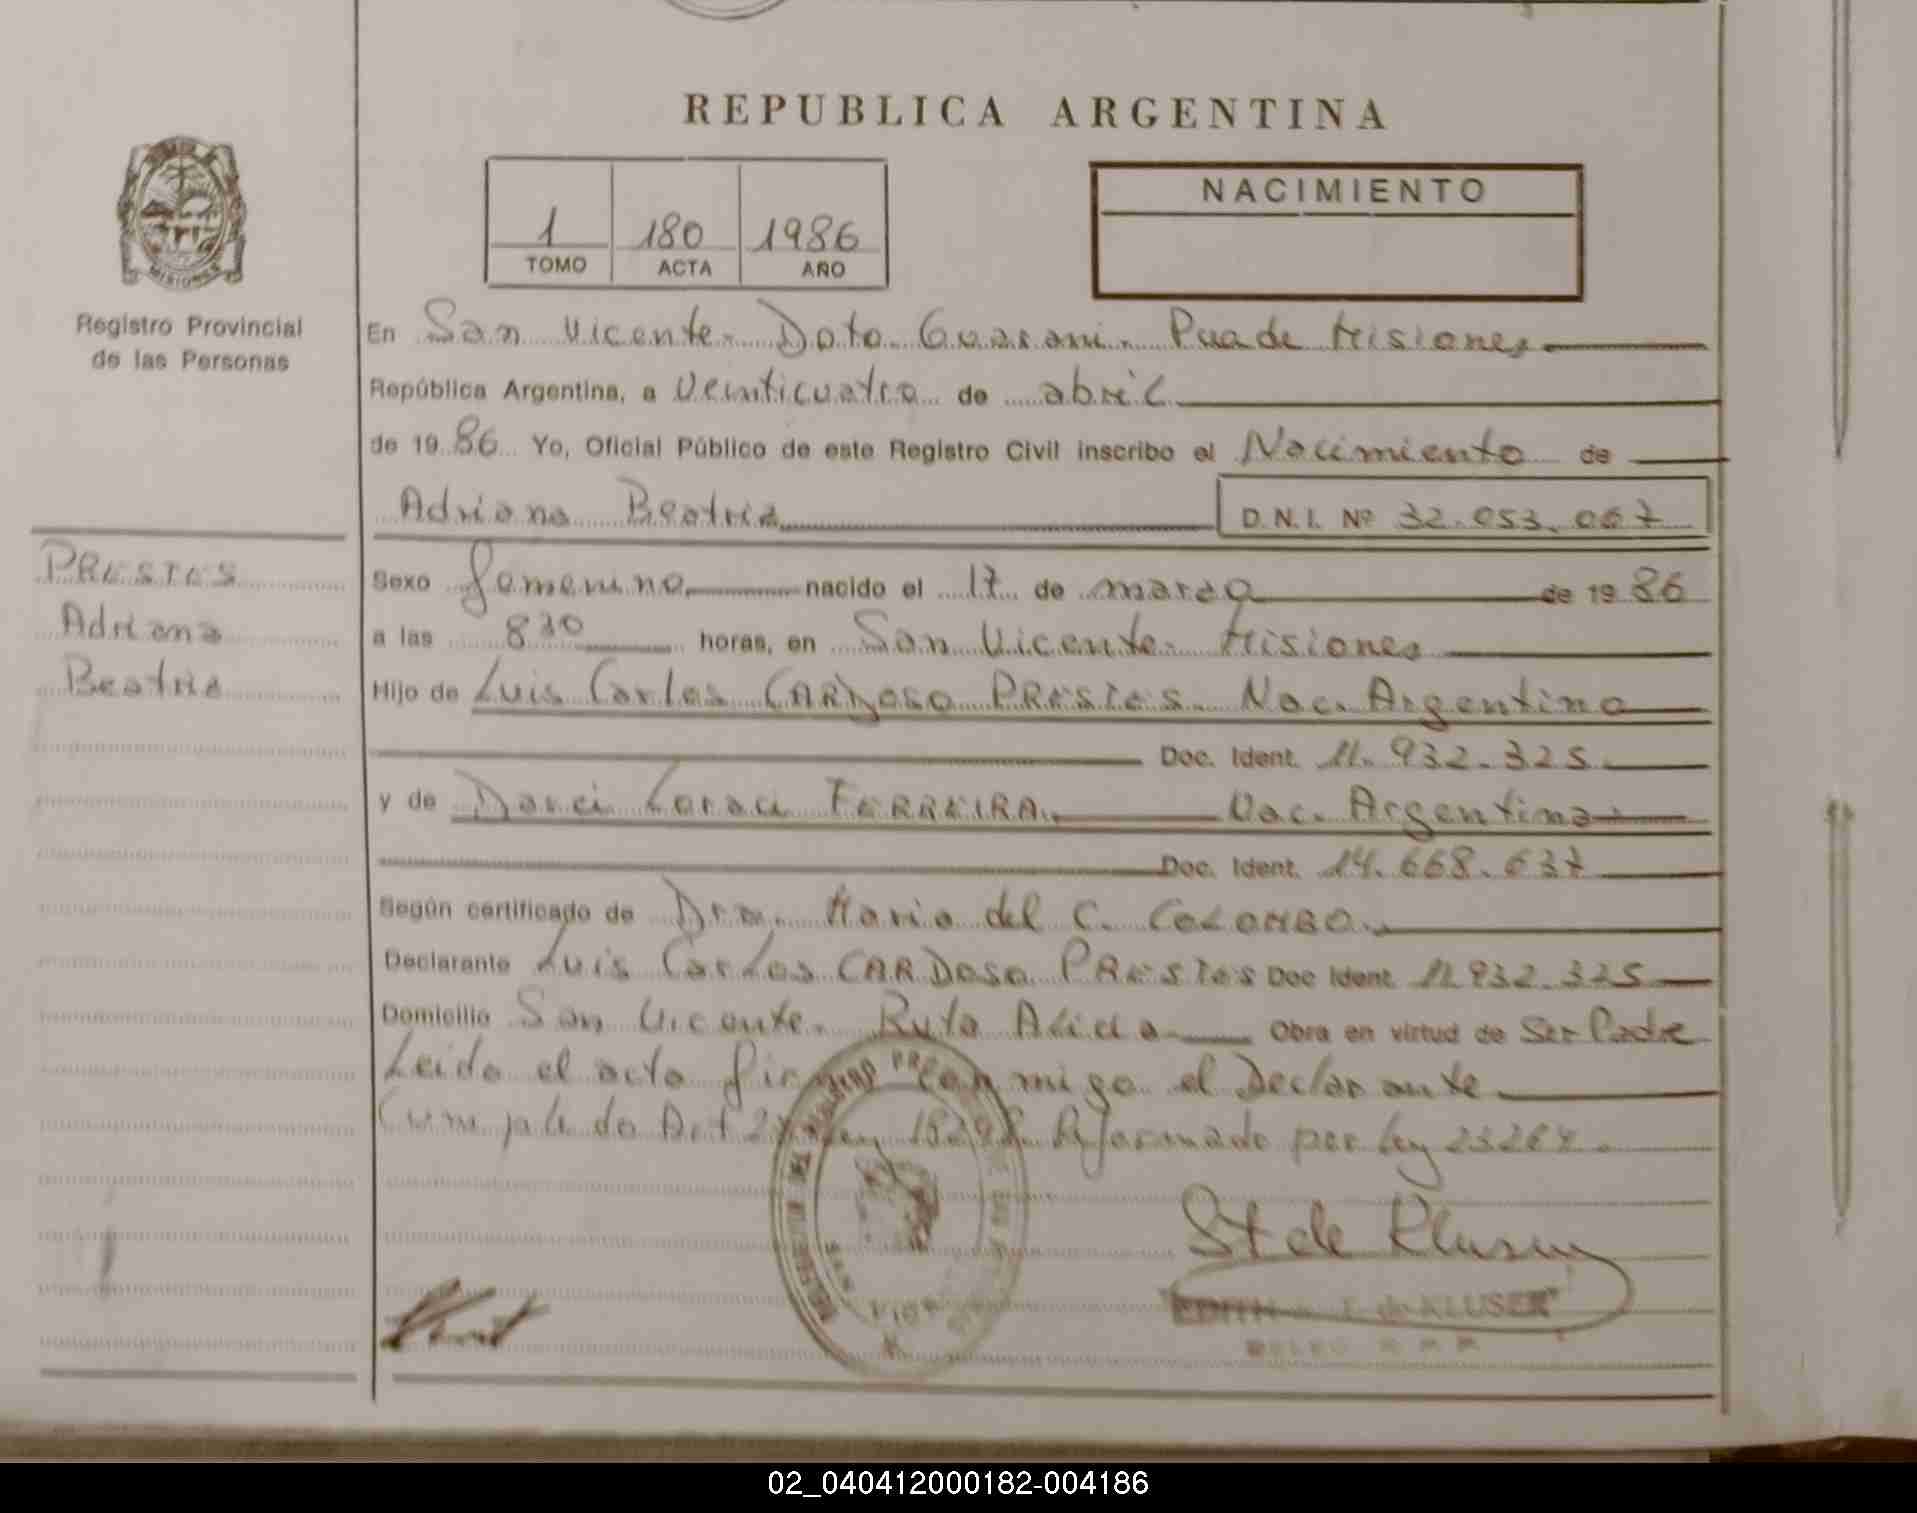 REPUBLICA ARGENTINA
MISIONES
Registro Provincial
de las Personas
1 180 1986
TOMO ACTA AÑO
NACIMIENTO
En San Vicente. Dpto. Guarani. Pcia de Misiones
República Argentina, a Veinticuatro de abril
de 1986 Yo, Oficial Público de este Registro Civil inscribo el Nacimiento de
Adriana Beatriz D.N.I. Nº 32.053.067
PRESTES
Adriana
Beatriz
Sexo femenino nacido el 17 de marzo de 1986
a las 830 horas, en San Vicente. Misiones
Hijo de Luis Carlos CARDOSO PRESTES. Nac. Argentino
Doc. Ident. 11.932.325
y de Darci Loraci FERREIRA. Nac. Argentina
Doc. Ident. 14.668.637
Según certificado de Dra. Maria del C. COLOMBO.
Declarante Luis Carlos CARDOSO PRESTES Doc Ident. 11.932.325
Domicilio San Vicente. Ruta Alicia Obra en virtud de Ser Padre
Leido el acta firma conmigo el Declarante
Cumplido Art Ley 18248 Reformado por Ley 23264.
St de Kluser
EDITH de KLUSER
02_040412000182-004186